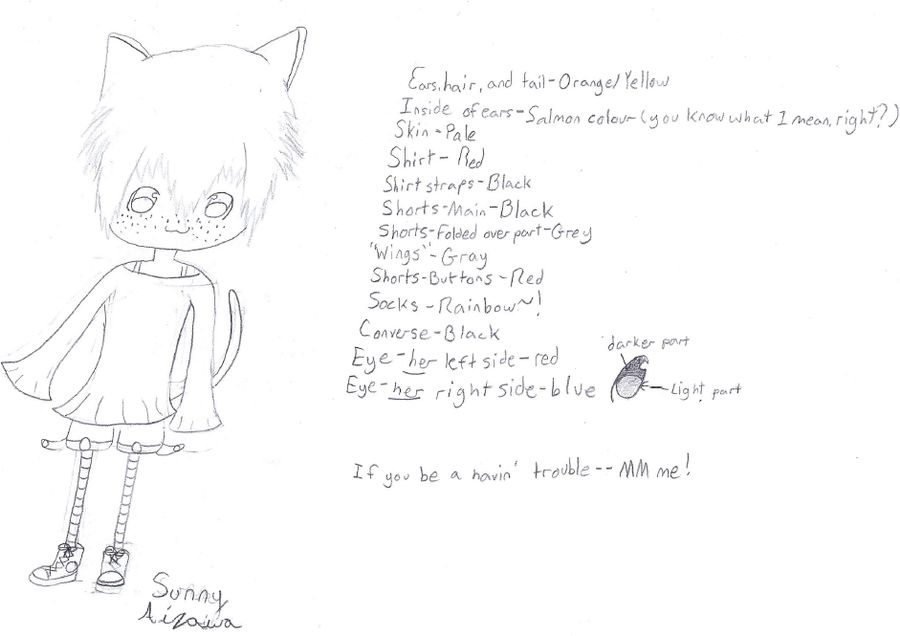 Ears, hair, and tail-Orange/Yellow
Inside of ears-Salmon colour-(you know what I mean, right?)
Skin-Pale
Shirt-Red
Shirt straps-Black
Shorts-Main-Black
Shorts-Folded over part-Grey
"Wings"-Gray
Shorts-Buttons-Red
Socks-Rainbow~!
Converse-Black
Eye-her left side-red
Eye-her right side-blue
darker part
Light part
If you be a havin' trouble--MM me!
Sunny
Aizawa